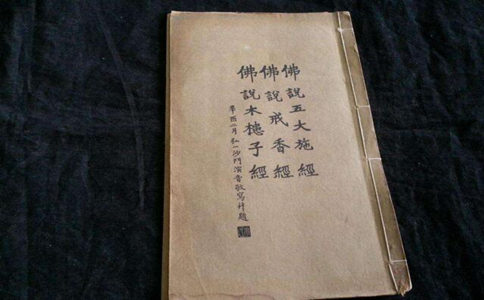 佛說五大施經
佛說戒香經
佛說木槵子經
辛酉二月弘一沙門演音敬寫并題